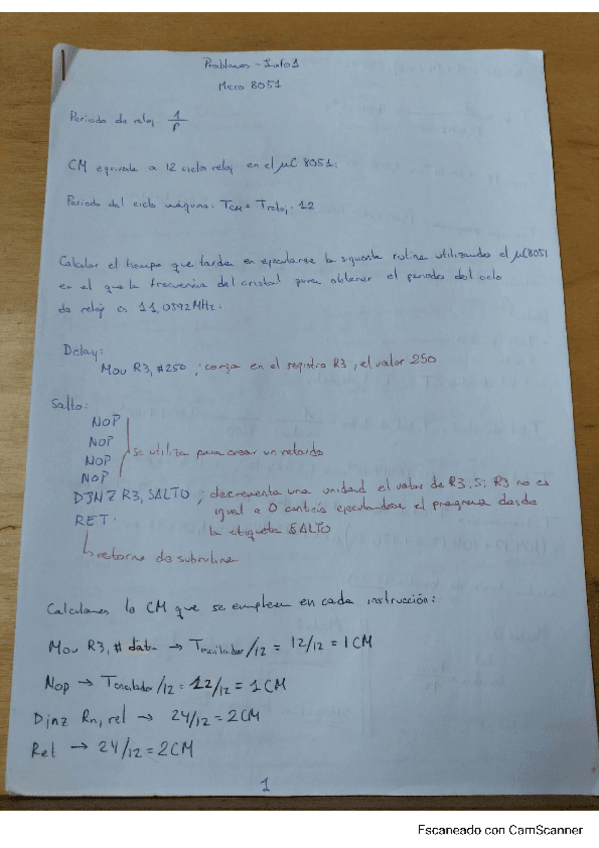 Problemas - Info 1
Micro 8051
Periodo de reloj 1/f
CM equivale a 12 ciclo reloj en el μC 8051:
Periodo del ciclo máquina: TCM = Treloj · 12
Calcular el tiempo que tarda en ejecutarse la siguiente rutina utilizando el μC8051
en el que la frecuencia del cristal para obtener el periodo del ciclo
de reloj es 11,0592 MHz.
Delay:
Mov R3, #250 ; carga en el registro R3, el valor 250
Salto:
NOP
NOP
se utiliza para crear un retardo
NOP
NOP
DJNZ R3, SALTO ; decrementa una unidad el valor de R3. Si R3 no es
igual a 0 continúa ejecutandose el programa desde
la etiqueta SALTO
RET.
retorno de subrutina
Calculamos los CM que se emplean en cada instrucción:
Mov R3, # data → Toscilador/12 = 12/12 = 1 CM
Nop → Toscilador/12 = 12/12 = 1 CM
Djnz Rn, rel → 24/12 = 2CM
Ret → 24/12 = 2CM
1
Escaneado con CamScanner